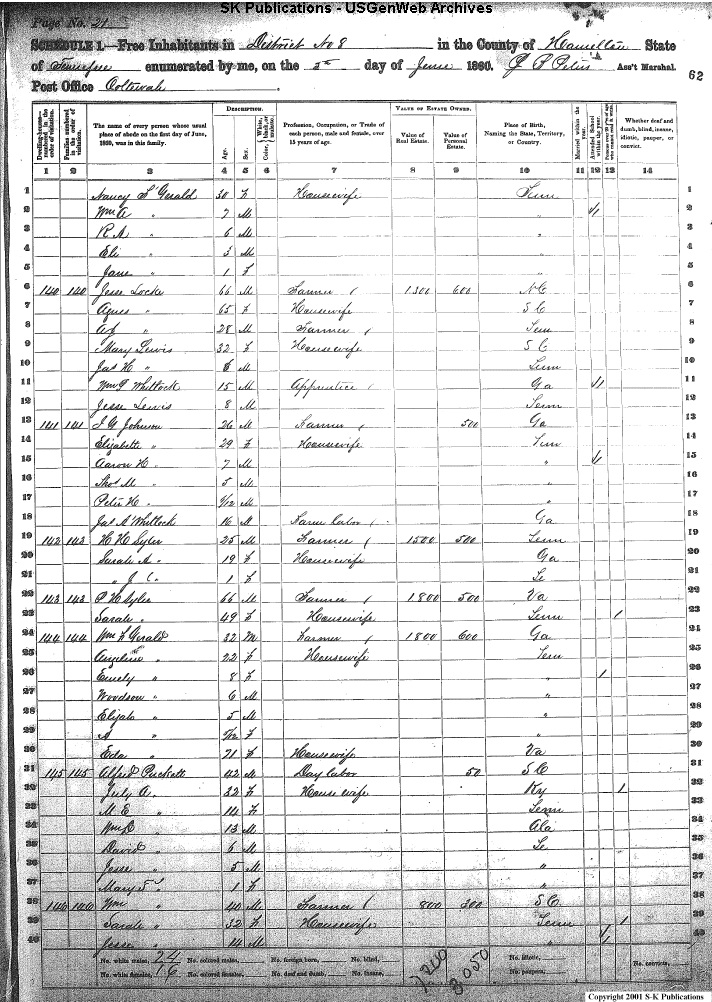 SK Publications - USGenWeb Archives
Page No. 21
SCHEDULE 1.—Free Inhabitants in District No 8 in the County of Hamilton State
of Tennessee enumerated by me, on the day of June 1860. Ass't Marshal.
62
Post Office
Dwelling-houses—numbered in the order of visitation.
Families numbered in the order of visitation.
The name of every person whose usual place of abode on the first day of June, 1860, was in this family.
DESCRIPTION.
Age.
Sex.
Color, White, black, or mulatto.
Profession, Occupation, or Trade of each person, male and female, over 15 years of age.
VALUE OF ESTATE OWNED.
Value of Real Estate.
Value of Personal Estate.
Place of Birth, Naming the State, Territory, or Country.
Married within the year.
Attended School within the year.
Whether deaf and dumb, blind, insane, idiotic, pauper, or convict.
1 2 3 4 5 6 7 8 9 10 11 12 13 14
1 Nancy S Gerald 30 f Housewife Tenn 1
2 Wm " 7 M " 1 2
3 R A " 6 M 3
4 Eli " 3 M 4
5 Jane " 1 f 5
6 140 140 Jesse Locke 66 M Farmer 1300 600 N C 6
7 Agnes " 65 f Housewife S C 7
8 " 28 M Farmer Tenn 8
9 Mary Lewis 32 f Housewife S C 9
10 Jas H " 6 M Tenn 10
11 Wm P Whitlock 15 M Apprentice Ga 1 11
12 Jesse Lewis 8 M Tenn 12
13 141 141 J G Johnson 26 M Farmer 500 Ga 13
14 Elizabeth " 29 f Housewife Tenn 14
15 Aaron H. " 7 M " 1 15
16 Thos M " 5 M " 16
17 Peter H " /12 M " 17
18 Jas A Whitlock 16 M Farm labor Ga 18
19 142 142 H H 25 M Farmer 1500 500 Tenn 19
20 Sarah A " 19 f Housewife Ga 20
21 " J C " 1 f Te 21
22 143 143 P H 66 M Farmer 1800 500 Va 22
23 Sarah " 49 f Housewife Tenn 1
24 144 144 Wm F Gerald 32 M Farmer 1800 600 Ga
25 Angeline " 22 f Housewife Tenn 25
26 Emely " 8 f " 1
27 Woodson " 6 M "
28 Elijah " 5 M "
29 A " /12 f "
30 Eda " 71 f Housewife Va
31 145 145 Alfred Puckett 42 M Day labor 50 S C
32 July A. " 32 f House wife Ky 1
33 M E " 14 f Tenn
34 Wm " 13 M Ala
35 David " 6 M Te
36 Jesse " 5 M "
37 Mary " 1 f "
38 146 146 Wm " 40 M Farmer 800 300 S C
39 Sarah " 32 f Housewife Tenn 1
40 Jesse " 14 M " 1
No. white males, 24 No. colored males, No. foreign born, No. blind, No. idiotic, No. convicts,
No. white females, 16 No. colored females, No. deaf and dumb, No. insane, 7200 3050 No. paupers,
Copyright 2001 S-K Publications